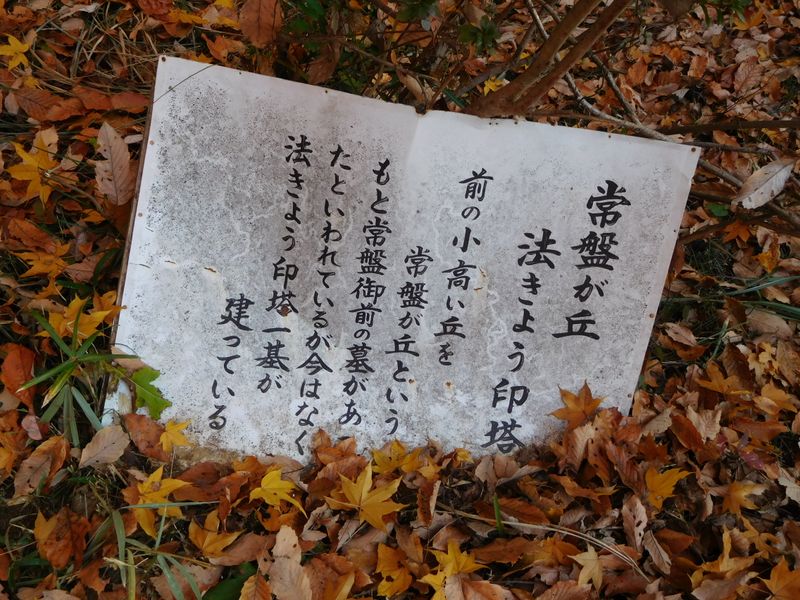 常盤が丘
法きよう印塔
前の小高い丘を
常盤が丘という
もと常盤御前の墓があっ
たといわれているが今はなく
法きよう印塔一基が
建っている